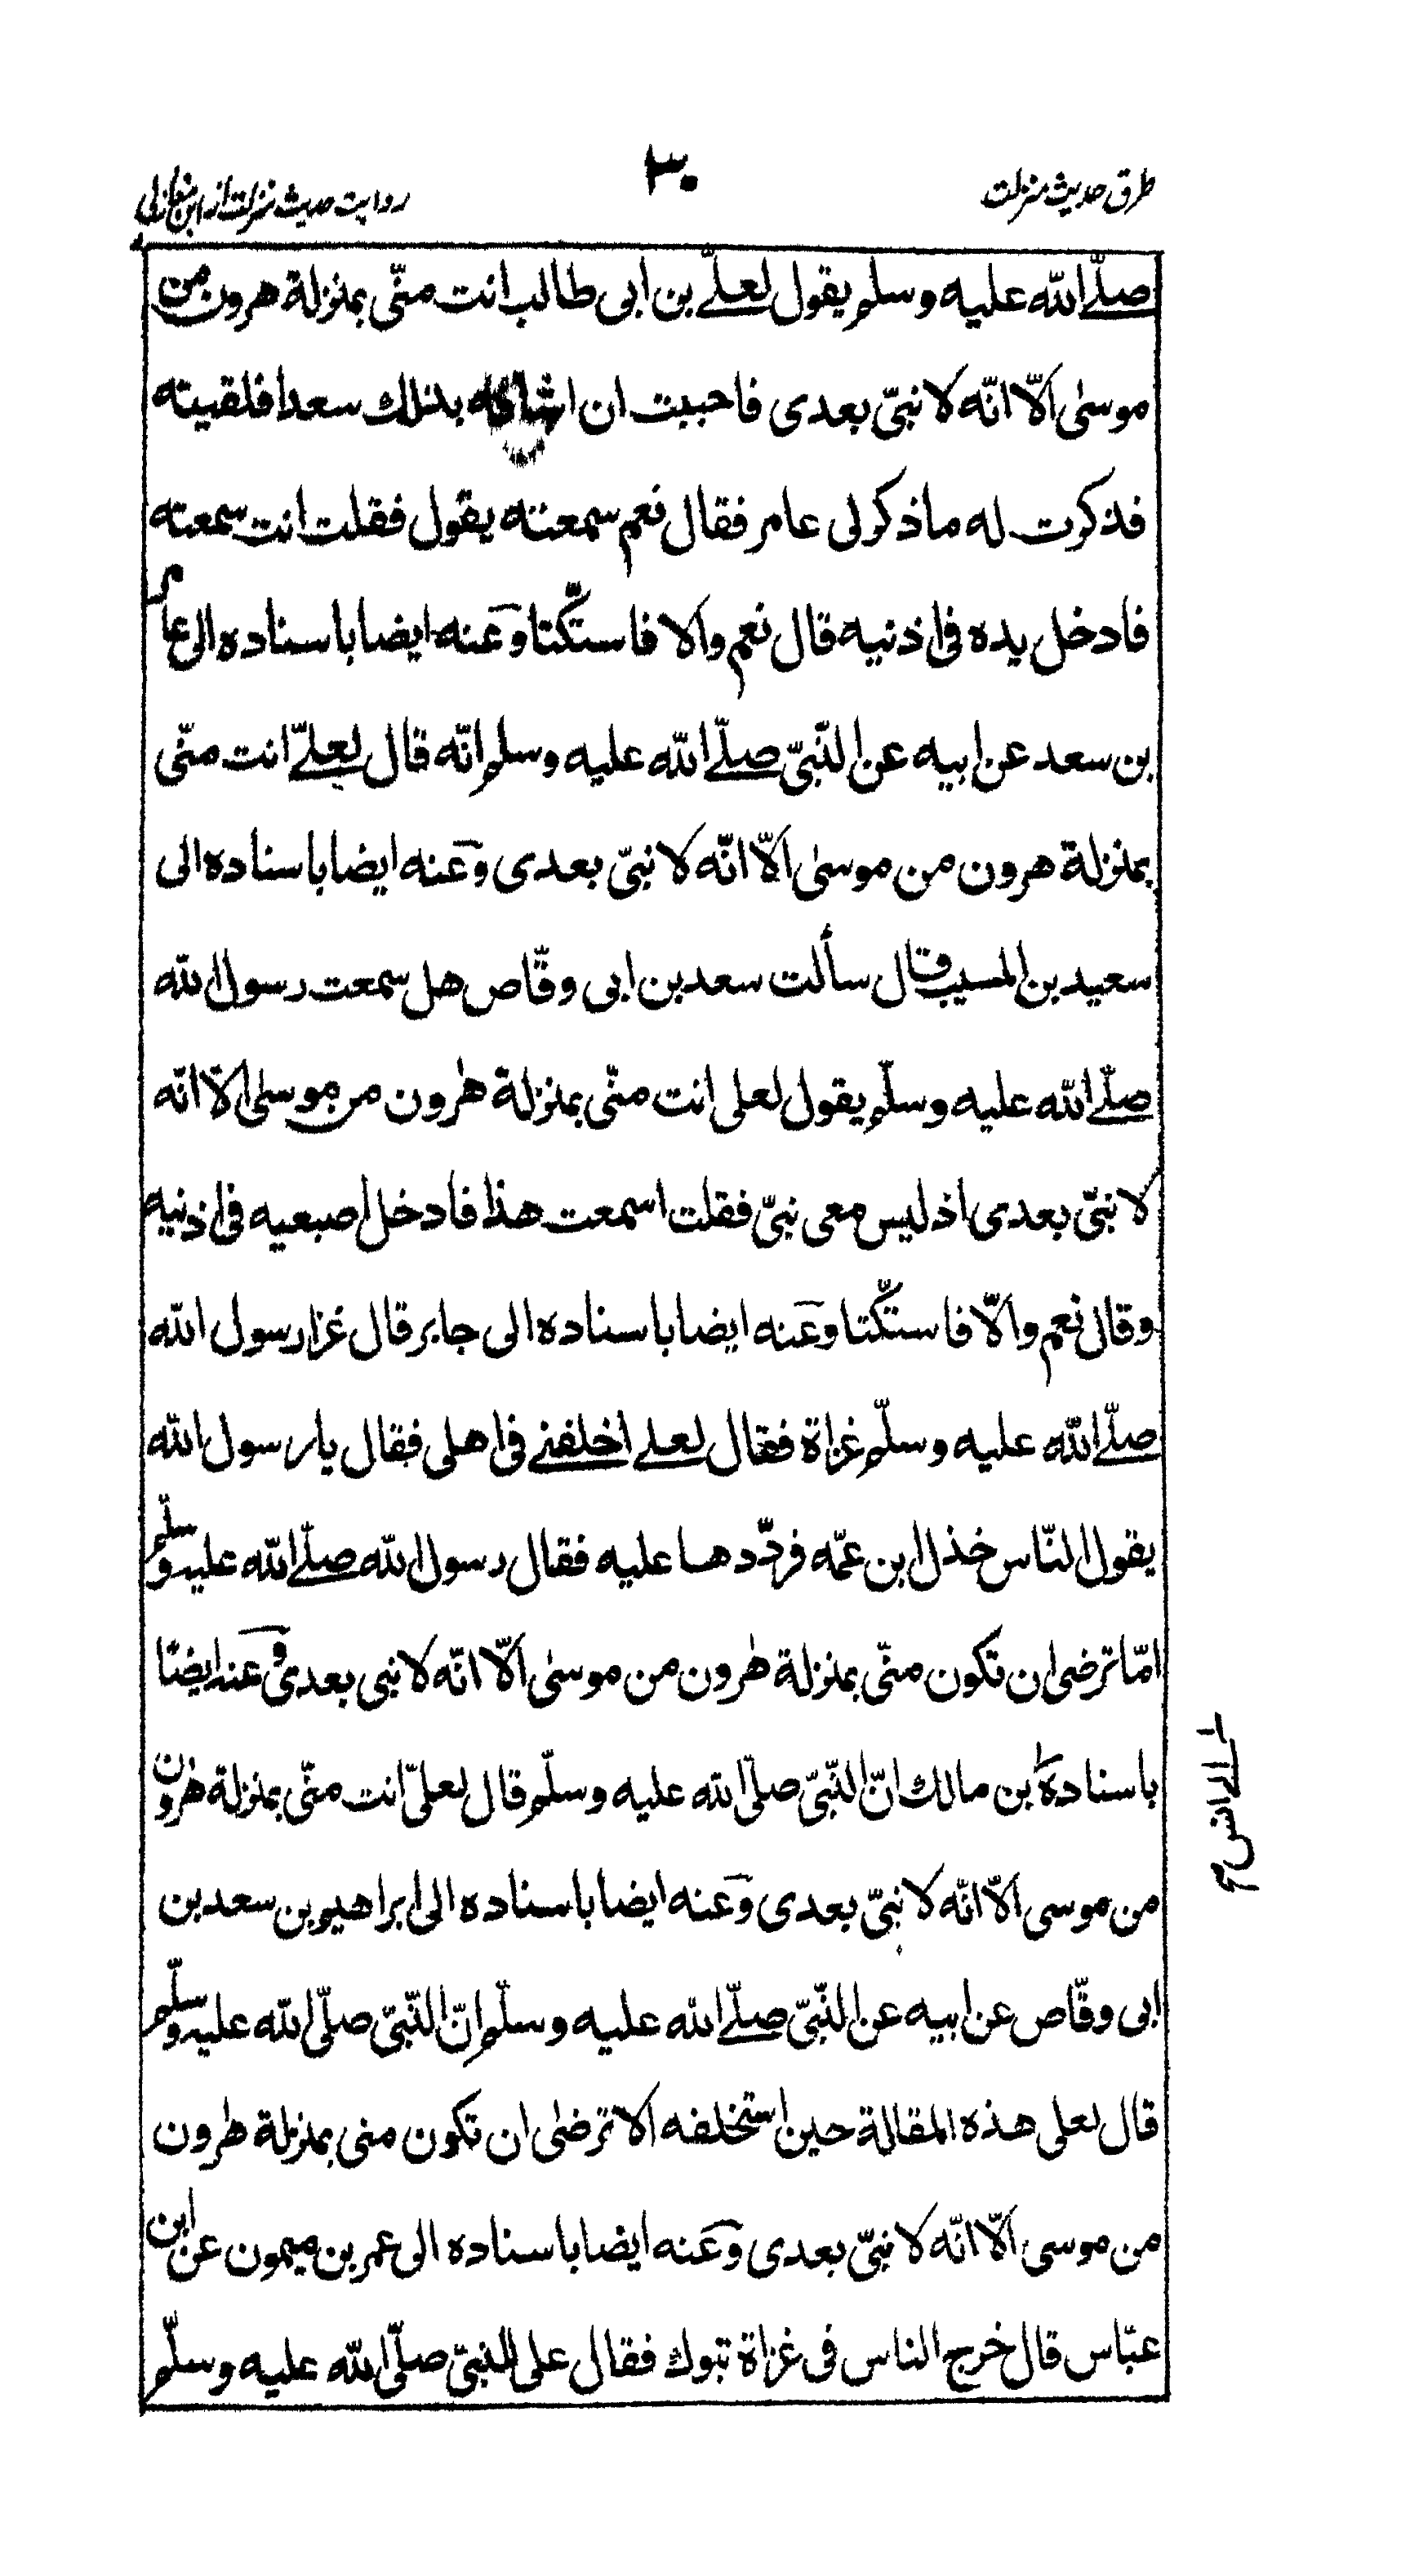 طرق حدیث منزلت
۳۰
روایت حدیث منزلت از ابن مغازلی
صلّے اللّه علیه وسلم یقول لعلّے بن ابی طالب انت منّی بمنزلة هرون من
موسیٰ الّا انّه لا نبیّ بعدی فاحببت ان اشافه بذلك سعدا فلقیته
فذکرت له ماذکر لی عامر فقال نعم سمعته یقول فقلت انت سمعته
فادخل یده فی اذنیه قال نعم والا فاستکّتا وعنه ایضا باسناده الی عامر
بن سعد عن ابیه عن النّبیّ صلّے اللّه علیه وسلم انّه قال لعلیّ انت منّی
بمنزلة هرون من موسیٰ الّا انّه لا نبیّ بعدی وعنه ایضا باسناده الی
سعید بن المسیب قال سألت سعد بن ابی وقّاص هل سمعت رسول اللّه
صلّے اللّه علیه وسلّم یقول لعلی انت منّی بمنزلة هٰرون من موسیٰ الّا انّه
لا نبیّ بعدی اذ لیس معی نبیّ فقلت اسمعت هذا فادخل اصبعیه فی اذنیه
وقال نعم والّا فاستکّتا وعنه ایضا باسناده الی جابر قال غزا رسول اللّه
صلّے اللّه علیه وسلّم غزاة فقال لعلے اخلفنے فی اهلی فقال یا رسول اللّه
یقول النّاس خذل ابن عمّه فردّدها علیه فقال رسول اللّه صلّے اللّه علیه وسلّم
امّا ترضی ان تکون منّی بمنزلة هٰرون من موسیٰ الّا انّه لا نبی بعدی وعنه ایضًا
باسناده بن مالك انّ النّبیّ صلّی اللّه علیه وسلّم قال لعلیّ انت منّی بمنزلة هٰرون
الی انس
من موسی الّا انّه لا نبیّ بعدی وعنه ایضا باسناده الی ابراهیم بن سعد بن
ابی وقّاص عن ابیه عن النّبیّ صلّے اللّه علیه وسلّم انّ النّبیّ صلّی اللّه علیه وسلّم
قال لعلی هذه المقالة حین استخلفه الا ترضیٰ ان تکون منی بمنزلة هٰرون
من موسی الّا انّه لا نبیّ بعدی وعنه ایضا باسناده الی عمر بن میمون عن ابن
عبّاس قال خرج الناس فی غزاة تبوك فقال علی للنبیّ صلّی اللّه علیه وسلّم